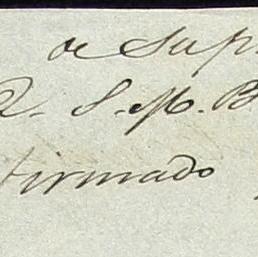 de Sup
Q. S. M. B
firmado